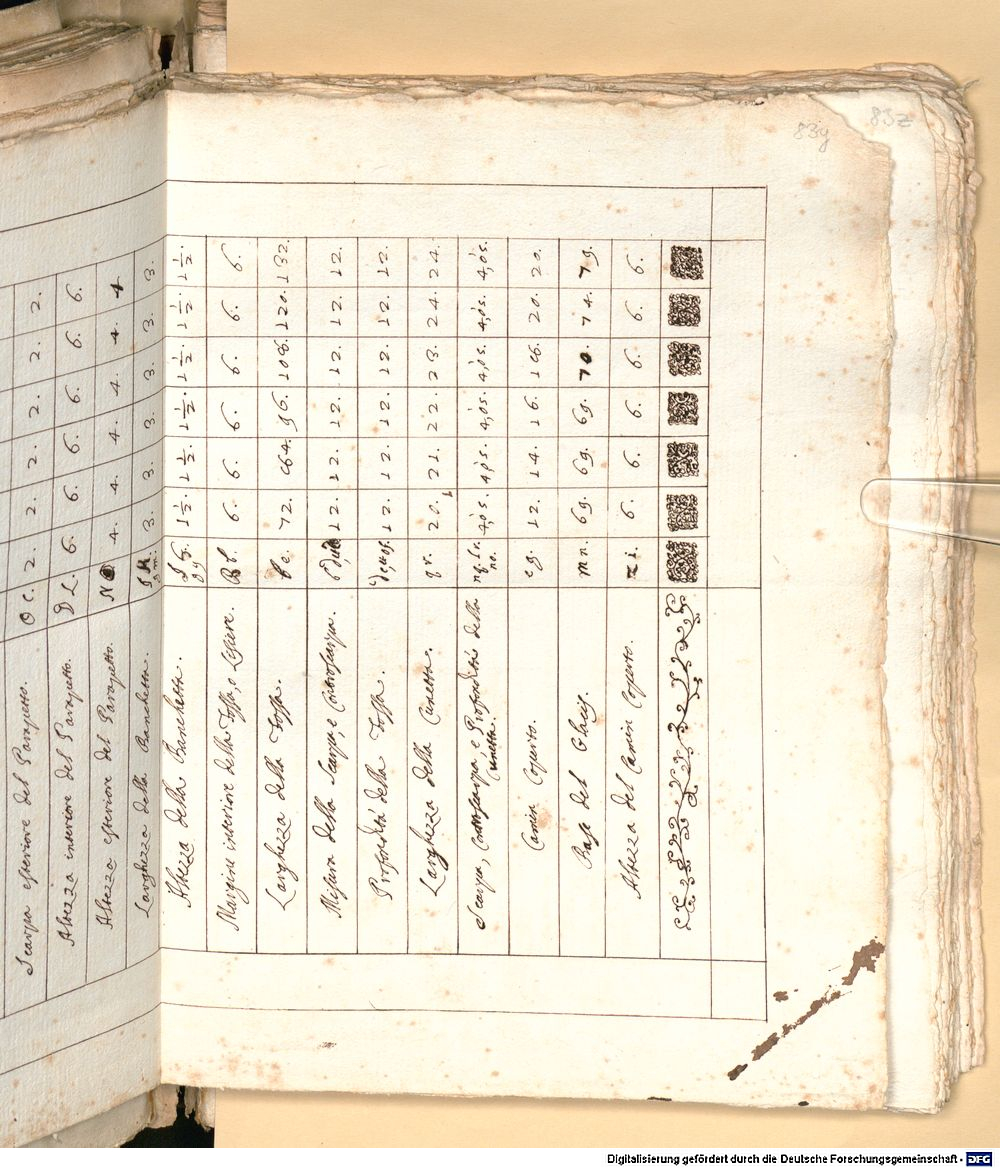 Scarpa esteriore del Parapetto. O C. 2. 2. 2. 2. 2. 2.
Altezza interiore del Parapetto. D L. 6. 6. 6. 6. 6. 6.
Altezza esteriore del Parapetto. N 4. 4. 4. 4. 4. 4
Larghezza della Banchetta. 3. 3. 3. 3. 3. 3.
Altezza della Banchetta. 1½. 1½. 1½. 1½. 1½. 1½.
Margine interiore della Fossa, o Lisiere. 6. 6. 6. 6. 6. 6.
Larghezza della Fossa. 72. 96. 108. 120. 132.
Misura della Scarpa, e Controscarpa. 12. 12. 12. 12. 12. 12.
Profondità della Fossa. 12. 12. 12. 12. 12. 12.
Larghezza della Cunetta. q r. 20. 21. 22. 23. 24. 24.
Scarpa, Controscarpa, e Profondità della
Cunetta. 4,ò 5. 4,ò 5. 4,ò 5. 4,ò 5. 4,ò 5. 4,ò 5.
Camin Coperto. 12. 14. 16. 20. 20.
Base del Glacis. m n. 69. 69. 69. 70. 74. 79.
Altezza del Camin Coperto. z i. 6. 6. 6. 6. 6. 6.
83y
83z
Digitalisierung gefördert durch die Deutsche Forschungsgemeinschaft - DFG